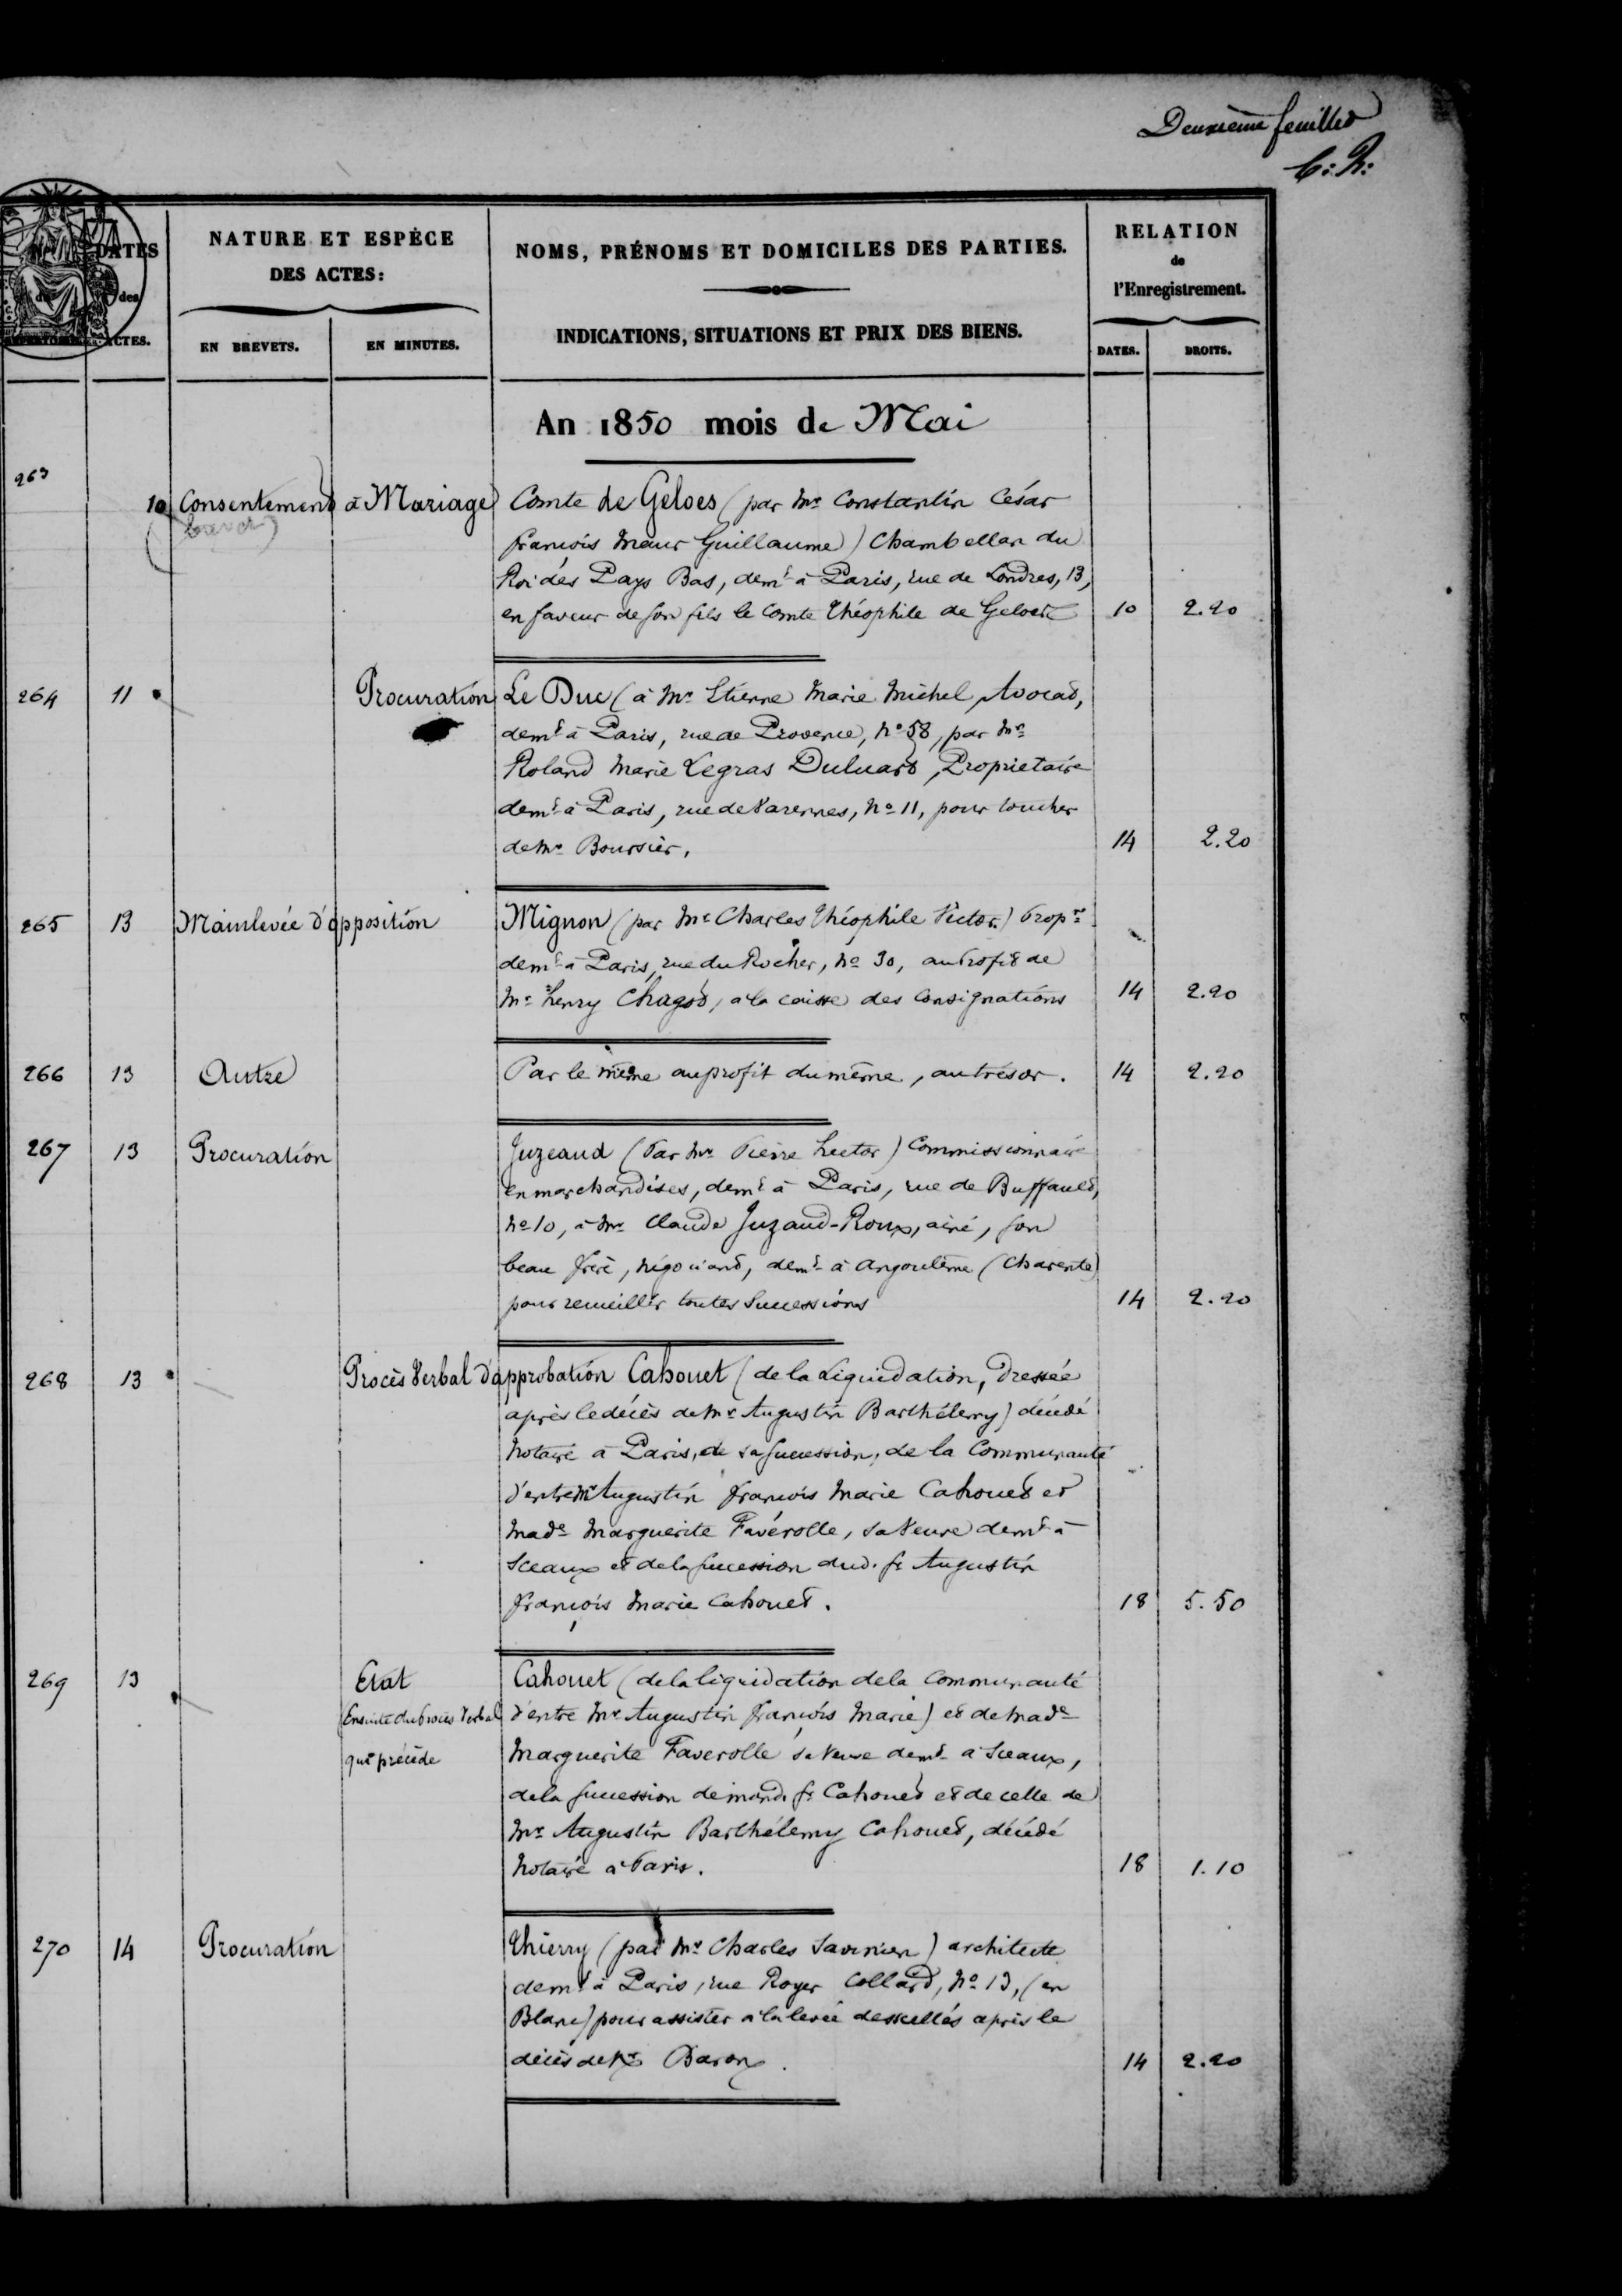 Deuxième feuillet
C: R:
Nos DATES NATURE ET ESPÈCE NOMS, PRÉNOMS ET DOMICILES DES PARTIES. RELATION
des DES ACTES: de
l'Enregistrement.
ACTES. EN BREVETS. EN MINUTES. INDICATIONS, SITUATIONS ET PRIX DES BIENS. DATES. DROITS.
An 1850 mois de Mai
263
10 Consentement à Mariage Comte de Geloes (par Mr. Constantin César
(brevet)
françois Maur Guillaume) Chambellan du
Roi des Pays Bas, demt. à Paris, rue de Londres, 13,
en faveur de son fils le Comte Théophile de Geloes 10 2.20
264 11 Procuration Le Duc (à Mr. Etienne Marie Michel, Avocat,
demt. à Paris, rue de Provence, No. 58, par Mr.
Roland Marie Legras Duluart, Propriétaire
demt. à Paris, rue de Varennes, No. 11, pour toucher
de Me. Boursier. 14 2.20
265 13 Mainlevée d'opposition Mignon (par Mr. Charles Théophile Victor) Propre.
demt. à Paris, rue du Rocher, No. 30, au Profit de
Mr. henry Chagot, à la caisse des Consignations 14 2.20
266 13 Autre Par le même au profit du même, au trésor. 14 2.20
267 13 Procuration Juzeaud (Par Mr. Pierre hector) Commissionnaire
en marchandises, demt. à Paris, rue de Buffault,
No. 10, à Mr. Claude Juzaud-Roux, ainé, son
beau frère, négociant, demt. à Angoulême (Charente)
pour recueillir toutes Successions 14 2.20
268 13 Procès Verbal d'approbation Cahouet (de la Liquidation, Dressée
après le décès de Mr. Augustin Barthélemy) décédé
Notaire à Paris, de sa succession, de la Communauté
d'entre Mr. Augustin françois Marie Cahouet et
Made. Marguerite Favérolle, sa Veuve demt. à
Sceaux et de la succession dud. sr. Augustin
françois Marie Cahouet. 18 5.50
269 13 Etat Cahouet (de la liquidation de la Communauté
Ensuite du Procès Verbal d'entre Mr. Augustin françois Marie) et de Made.
qui précède Marguerite Faverolle sa Veuve demt. à Sceaux,
de la succession de mond. sr. Cahouet et de celle de
Mr. Augustin Barthélemy Cahouet, décédé
Notaire à Paris. 18 1.10
270 14 Procuration Thierry (par Mr. Charles Savinien) architecte
demt. à Paris, rue Royer Collard, No. 13, (en
Blanc) pour assister à la levée des scellés après le
décès de Mr. Baron. 14 2.20